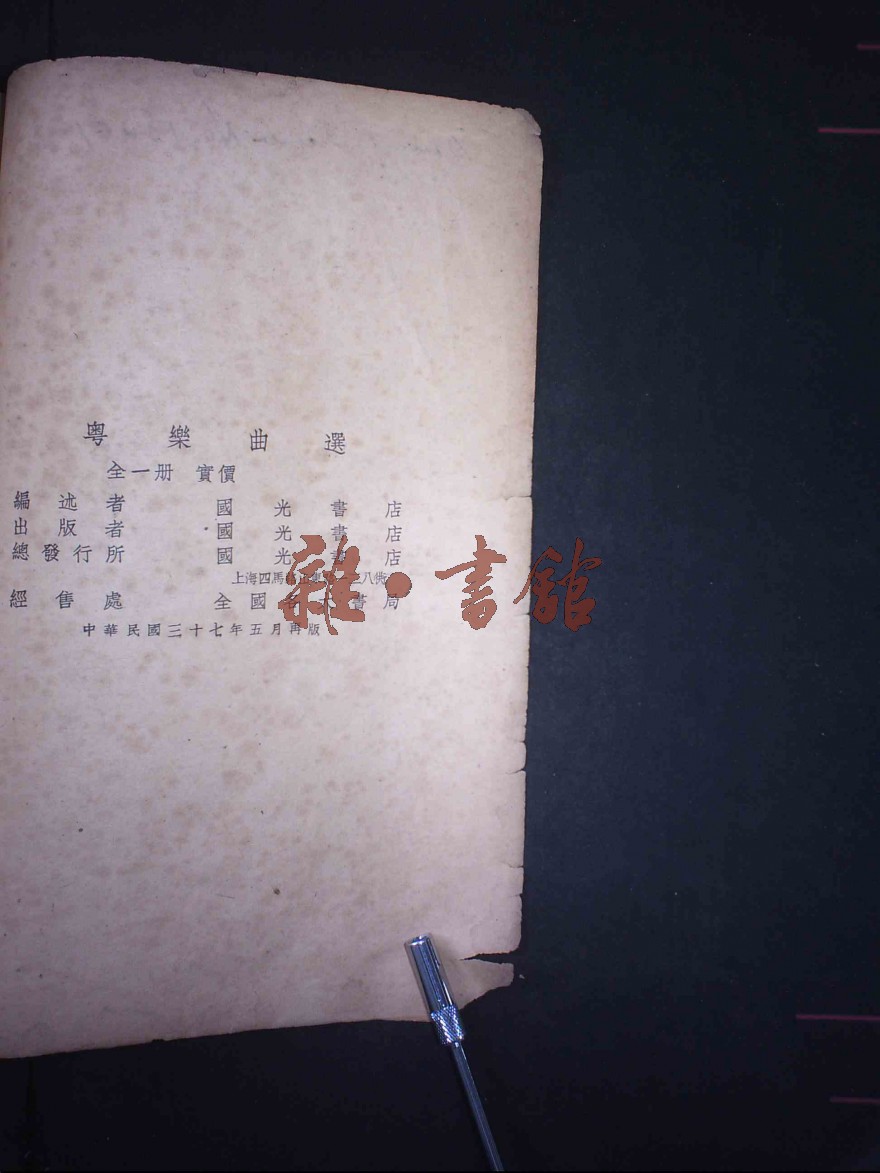 粵樂曲選
全一册 實價
編述者 國光書店
出版者 國光書店
總發行所 國光書店
上海四馬
經售處 全國 書局
中華民國三十七年五月再版
雜·書館